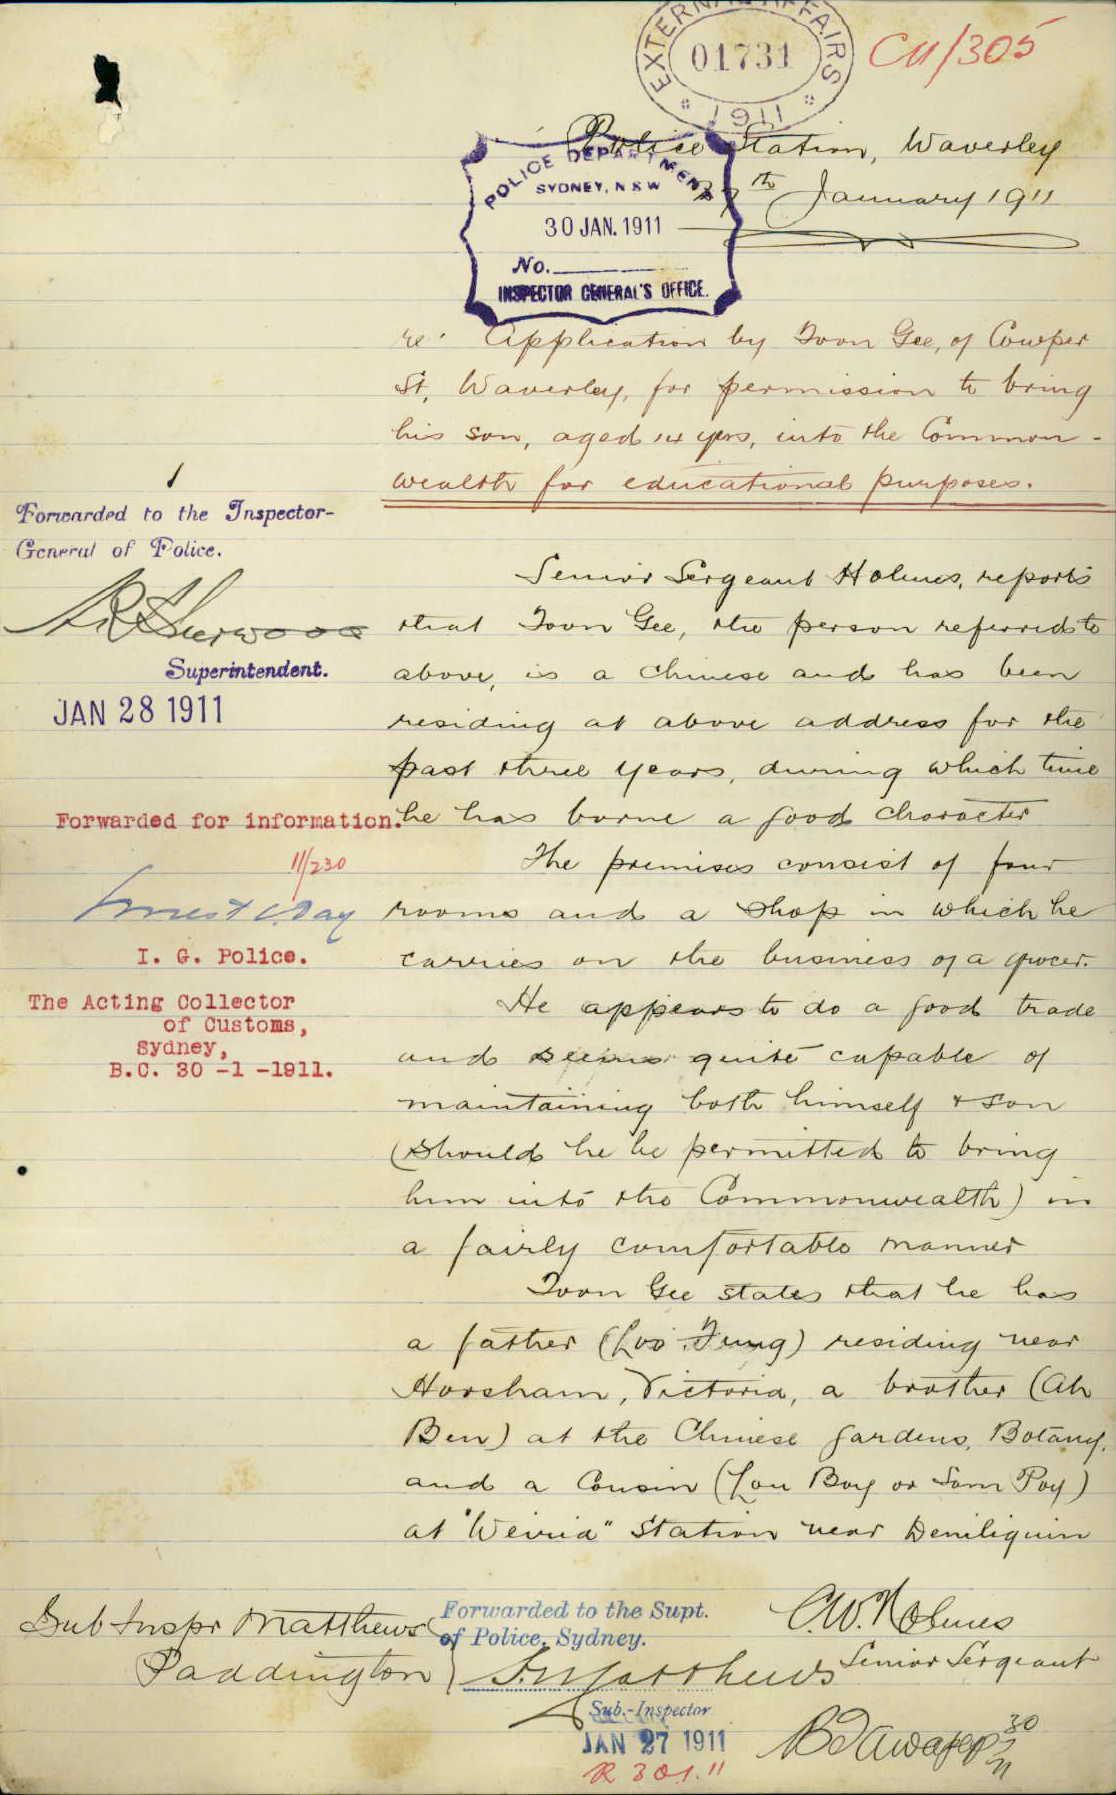 EXTERNAL AFFAIRS
01731
1911
CH/305
Police Station, Waverley
27th January 1911
POLICE DEPARTMENT
SYDNEY, N S W
30 JAN. 1911
No.
INSPECTOR GENERAL'S OFFICE.
re: Application by Toon Gee, of Cowper
St, Waverley, for permission to bring
his son, aged 14 yrs, into the Common-
wealth for educational purposes.
Forwarded to the Inspector-
General of Police.
Superintendent.
JAN 28 1911
Senior Sergeant Holmes, reports
that Toon Gee, the person referred to
above, is a Chinese and has been
residing at above address for the
past three years, during which time
he has borne a good character
The premises consist of four
rooms and a shop in which he
carries on the business of a grocer.
He appears to do a good trade
and seems quite capable of
maintaining both himself & son
(should he be permitted to bring
him into the Commonwealth) in
a fairly comfortable manner
Toon Gee states that he has
a father (Loo Fung) residing near
Horsham, Victoria, a brother (Ah
Ben) at the Chinese gardens, Botany,
and a Cousin (Lou Boy or Sam Poy)
at "Weiria" Station near Deniliquin
Forwarded for information.
11/230
Ernest C. Day
I. G. Police.
The Acting Collector
of Customs,
Sydney,
B.C. 30 -1 -1911.
C.W. Holmes
Senior Sergeant
Sub Inspr Matthews
Paddington
Forwarded to the Supt.
of Police, Sydney.
S. Matthews
Sub.-Inspector
JAN 27 1911
R 301.11
30
1
11